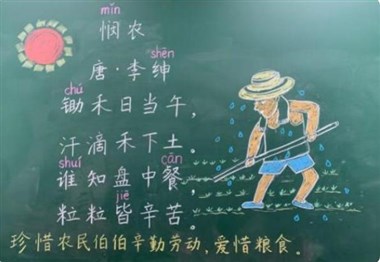 mǐn
悯农
shēn
唐·李绅
chú
锄禾日当午，
汗滴禾下土。
shuí cān
谁知盘中餐，
jiē
粒粒皆辛苦。
珍惜农民伯伯辛勤劳动，爱惜粮食。